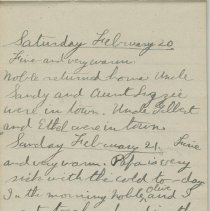 Saturday February 20
Fine and very warm.
Noble returned home Uncle
Sandy and Aunt Lizzie
were in town. Uncle Gilbert
and Ethel were in town.
Sunday February 21. Fine
and very warm. Papa is very
sick with the cold to-day
In the morning Noble, Olive, and I